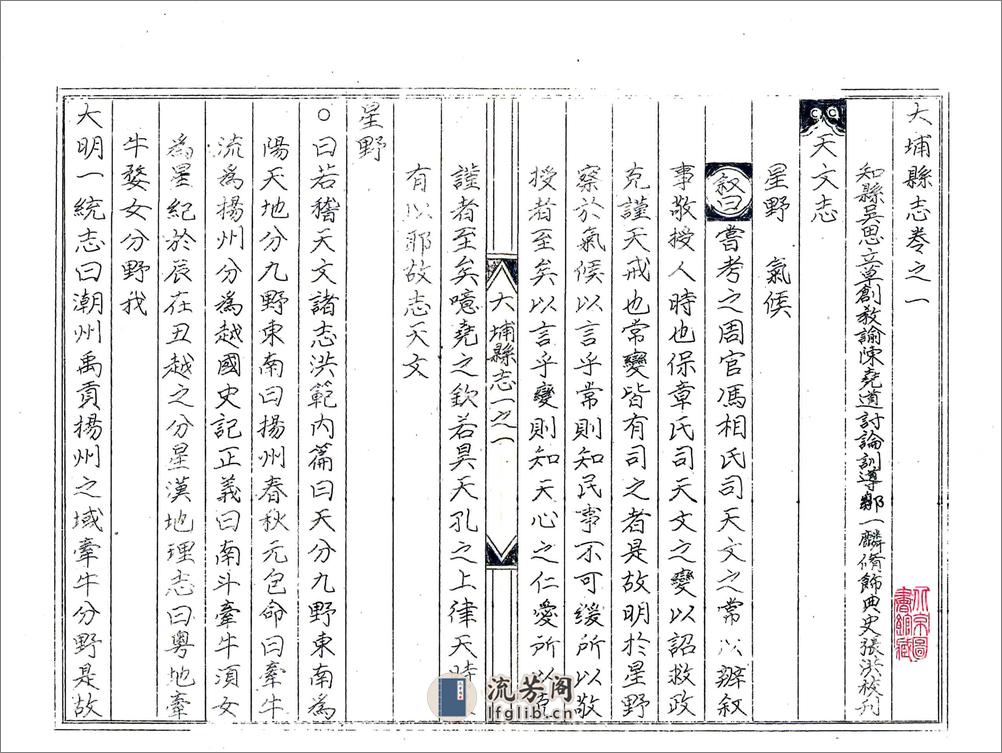 大埔縣志卷之一
知縣吳思立草創教諭陳堯道討論訓導鄒一麟脩飾典史張洪校刊
天文志
星野　氣候
叙曰嘗考之周官馮相氏司天文之常以辧叙
事敬授人時也保章氏司天文之變以詔救政
克謹天戒也常變皆有司之者是故明於星野
察於氣候以言乎常則知民事不可緩所以敬
授者至矣以言乎變則知天心之仁愛所以克
謹者至矣噫堯之欽若昊天孔之上律天時
有以耶故志天文
大埔縣志一之一
星野
○曰若稽天文諸志洪範內篇曰天分九野東南為
陽天地分九野東南曰揚州春秋元包命曰牽牛
流為揚州分為越國史記正義曰南斗牽牛須女
為星紀於辰在丑越之分星漢地理志曰粵地牽
牛婺女分野我
大明一統志曰潮州禹貢揚州之域牽牛分野是故
北京圖書館藏
流芳阁
lfglib.cn